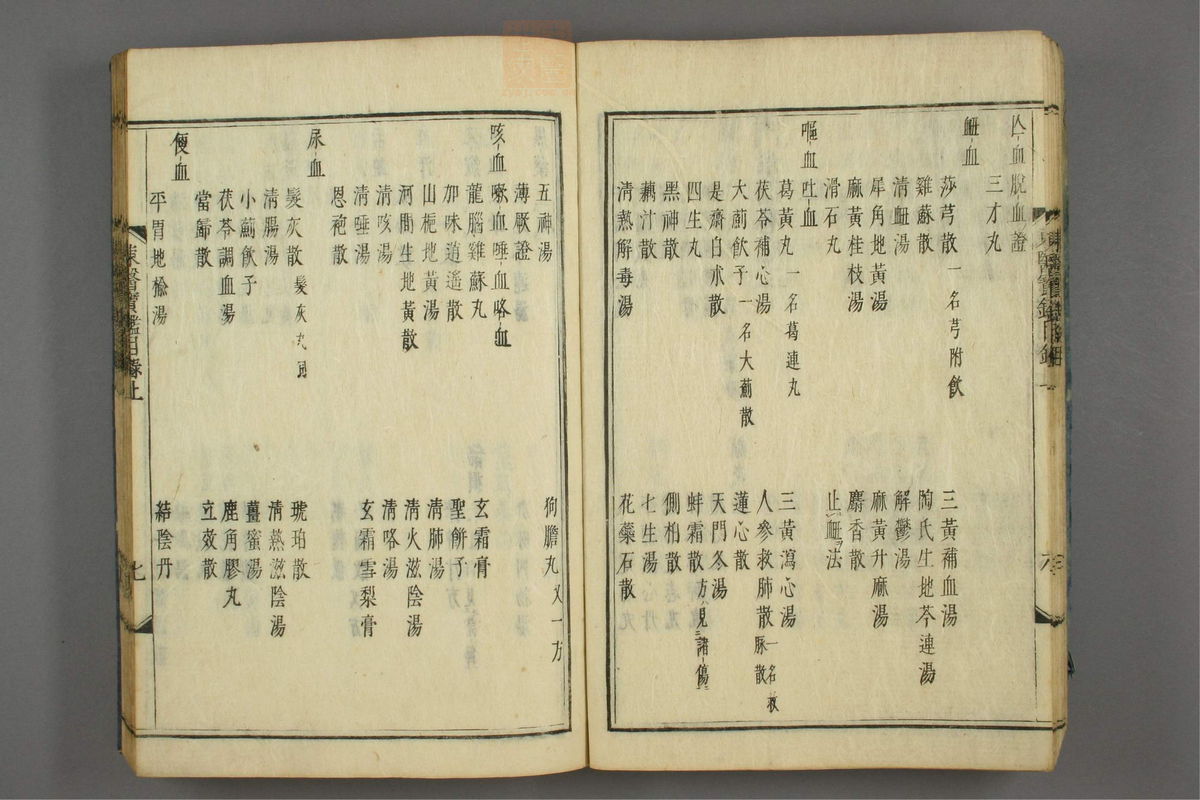 血脫血證
三才丸
衂血
莎芎散 一名芎附飲
三黃補血湯
雞蘇散
陶氏生地芩連湯
清衂湯
解鬱湯
犀角地黃湯
麻黃升麻湯
麻黃桂枝湯
麝香散
滑石丸
止衂法
嘔血吐血
葛黃丸 一名葛連丸
三黃瀉心湯
茯苓補心湯
人參救肺散 一名救脉散
大薊飲子 一名大薊散
蓮心散
是齋白朮散
天門冬湯
四生丸
蚌霜散 方見諸傷
黑神散
側柏散
藕汁散
七生湯
清熱解毒湯
花蘂石散
五神湯
狗膽丸 又一方
咳血嗽血唾血咯血
薄厥證
龍腦雞蘇丸
玄霜膏
加味逍遙散
聖餅子
山梔地黃湯
清肺湯
河間生地黃散
清火滋陰湯
清咳湯
清咯湯
清唾湯
玄霜雪梨膏
恩袍散
尿血
髮灰散 髮灰丸
琥珀散
清腸湯
清熱滋陰湯
小薊飲子
薑蜜湯
茯苓調血湯
鹿角膠丸
當歸散
立效散
便血
平胃地楡湯
結陰丹
東醫寶鑑目錄上
七